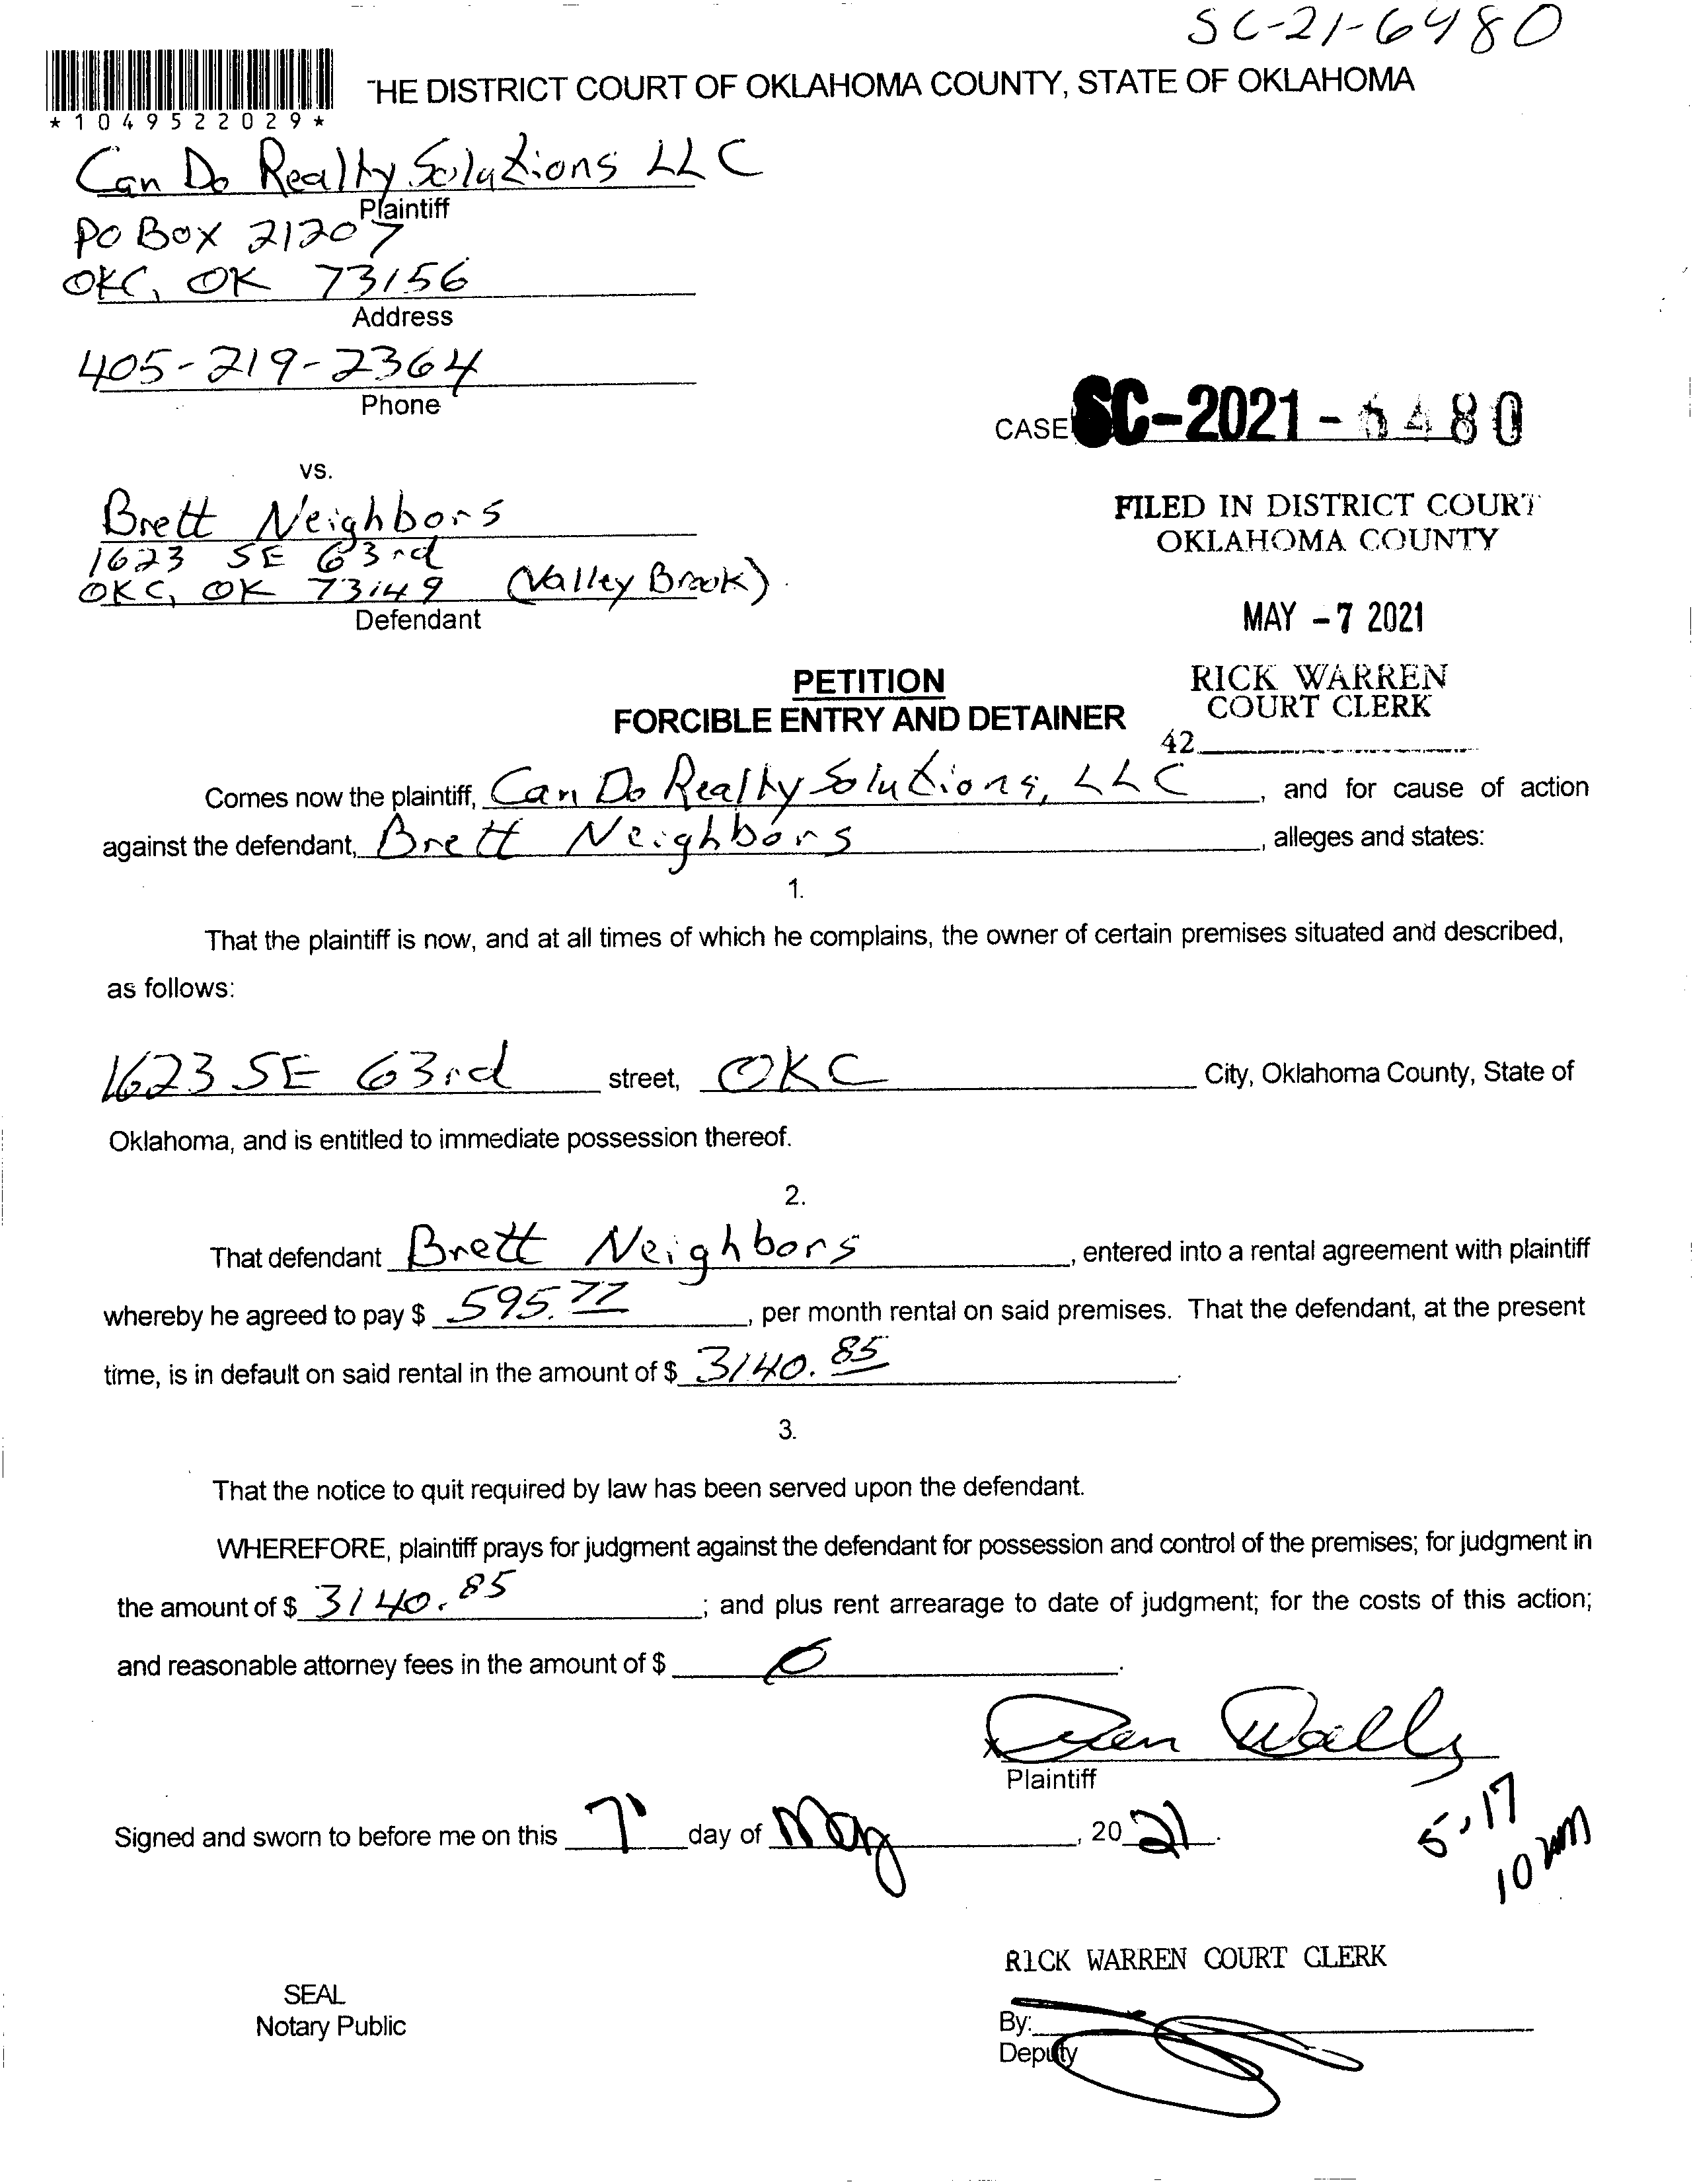 SC-21-6480
*1049522029*
THE DISTRICT COURT OF OKLAHOMA COUNTY, STATE OF OKLAHOMA
Can Do Realty Solutions LLC
Plaintiff
PO Box 21207
OKC, OK 73156
Address
405-219-2364
Phone
CASE SC-2021-6480
vs.
FILED IN DISTRICT COURT
OKLAHOMA COUNTY
Brett Neighbors
1623 SE 63rd
OKC, OK 73149 (Valley Brook)
Defendant
MAY -7 2021
PETITION
FORCIBLE ENTRY AND DETAINER
RICK WARREN
COURT CLERK
42
Comes now the plaintiff, Can Do Realty Solutions, LLC, and for cause of action
against the defendant, Brett Neighbors, alleges and states:
1.
That the plaintiff is now, and at all times of which he complains, the owner of certain premises situated and described,
as follows:
1623 SE 63rd street, OKC City, Oklahoma County, State of
Oklahoma, and is entitled to immediate possession thereof.
2.
That defendant Brett Neighbors, entered into a rental agreement with plaintiff
whereby he agreed to pay $ 595.77, per month rental on said premises. That the defendant, at the present
time, is in default on said rental in the amount of $ 3140.85.
3.
That the notice to quit required by law has been served upon the defendant.
WHEREFORE, plaintiff prays for judgment against the defendant for possession and control of the premises; for judgment in
the amount of $ 3140.85; and plus rent arrearage to date of judgment; for the costs of this action;
and reasonable attorney fees in the amount of $ 0.
Plaintiff
Signed and sworn to before me on this 7 day of May, 2021.
5.17
10 am
RICK WARREN COURT CLERK
SEAL
Notary Public
By:
Deputy